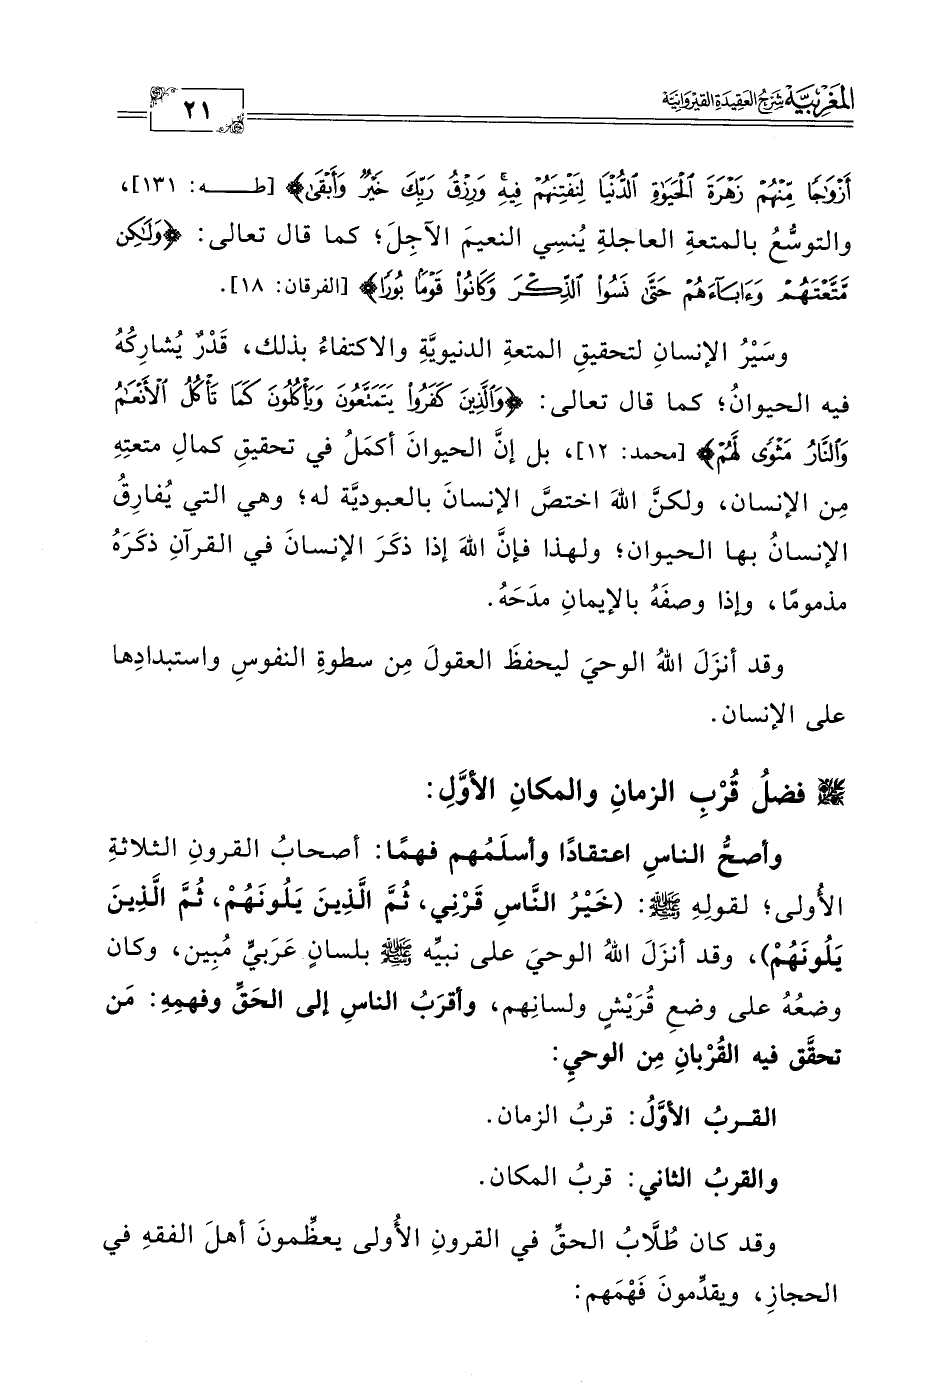 المغربيّة شَرْحُ العَقِيدَةِ القَيْرَوَانِيَّة
٢١
أَزْوَٰجًا مِّنْهُمْ زَهْرَةَ ٱلْحَيَوٰةِ ٱلدُّنْيَا لِنَفْتِنَهُمْ فِيهِ وَرِزْقُ رَبِّكَ خَيْرٌ وَأَبْقَىٰ﴾ [طـــه: ١٣١]،
والتوسُّعُ بالمتعةِ العاجلةِ يُنسِي النعيمَ الآجِلَ؛ كما قال تعالى: ﴿وَلَٰكِن
مَّتَّعْتَهُمْ وَءَابَآءَهُمْ حَتَّىٰ نَسُوا۟ ٱلذِّكْرَ وَكَانُوا۟ قَوْمًۢا بُورًا﴾ [الفرقان: ١٨].
وسَيْرُ الإنسانِ لتحقيقِ المتعةِ الدنيويَّةِ والاكتفاءُ بذلك، قَدْرٌ يُشارِكُهُ
فيه الحيوانُ؛ كما قال تعالى: ﴿وَٱلَّذِينَ كَفَرُوا۟ يَتَمَتَّعُونَ وَيَأْكُلُونَ كَمَا تَأْكُلُ ٱلْأَنْعَٰمُ
وَٱلنَّارُ مَثْوًى لَّهُمْ﴾ [محمد: ١٢]، بل إنَّ الحيوانَ أكمَلُ في تحقيقِ كمالِ متعتِهِ
مِن الإنسان، ولكنَّ اللهَ اختصَّ الإنسانَ بالعبوديَّة له؛ وهي التي يُفارِقُ
الإنسانُ بها الحيوان؛ ولهذا فإنَّ اللهَ إذا ذكَرَ الإنسانَ في القرآنِ ذكَرَهُ
مذمومًا، وإذا وصفَهُ بالإيمانِ مدَحَهُ.
وقد أنزَلَ اللهُ الوحيَ ليحفظَ العقولَ مِن سطوةِ النفوسِ واستبدادِها
على الإنسان.
فضلُ قُرْبِ الزمانِ والمكانِ الأوَّلِ:
وأصحُّ الناسِ اعتقادًا وأسلَمُهم فهمًا: أصحابُ القرونِ الثلاثةِ
الأُولى؛ لقولِهِ ﷺ: (خَيْرُ النَّاسِ قَرْنِي، ثُمَّ الَّذِينَ يَلُونَهُمْ، ثُمَّ الَّذِينَ
يَلُونَهُمْ)، وقد أنزَلَ اللهُ الوحيَ على نبيِّه ﷺ بلسانٍ عَرَبيٍّ مُبِين، وكان
وضعُهُ على وضعِ قُرَيْشٍ ولسانِهم، وأقرَبُ الناسِ إلى الحَقِّ وفهمِهِ: مَن
تحقَّق فيه القُرْبانِ مِن الوحيِ:
القــربُ الأوَّلُ: قربُ الزمان.
والقربُ الثاني: قربُ المكان.
وقد كان طُلَّابُ الحقِّ في القرونِ الأُولى يعظِّمونَ أهلَ الفقهِ في
الحجازِ، ويقدِّمونَ فَهْمَهم: